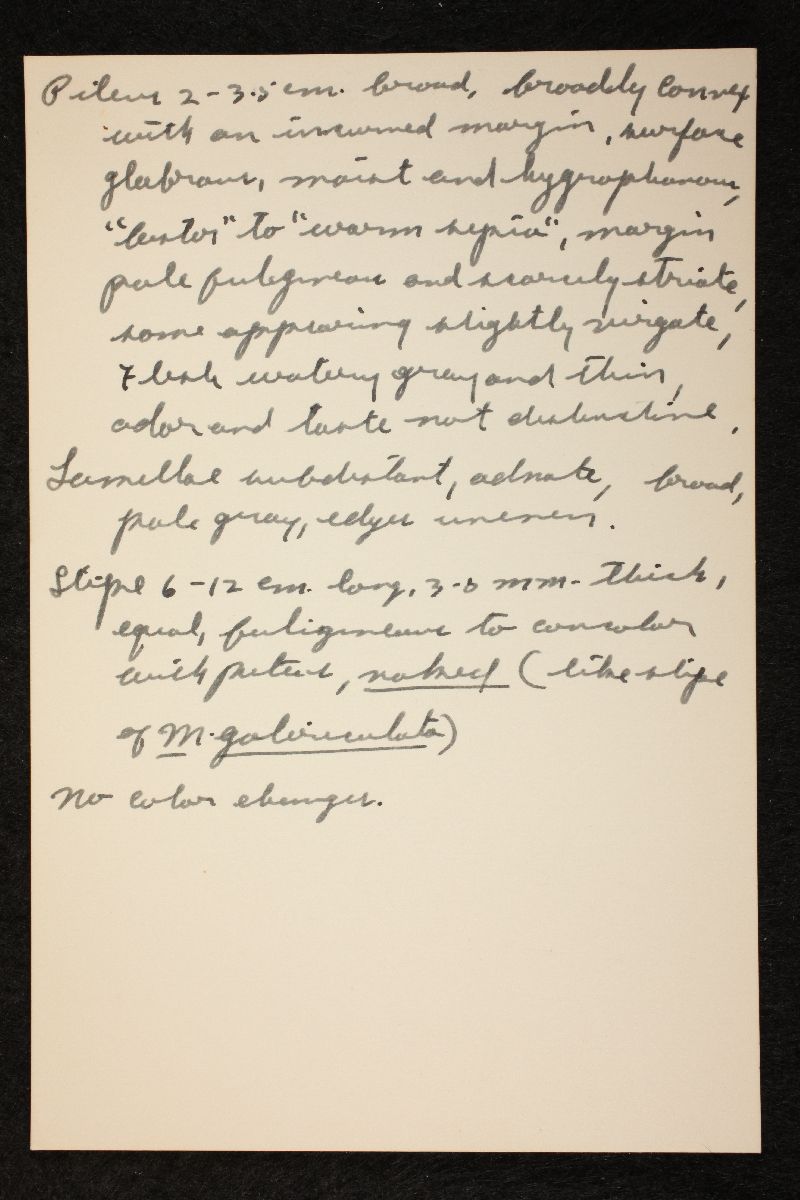 Pileus 2-3.5 cm. broad, broadly convex
with an incurved margin, surface
glabrous, moist and hygrophanous,
"bister" to "warm sepia", margin
pale fuligineous and scarcely striate,
some appearing slightly virgate,
Flesh watery gray and thin,
odor and taste not distinctive.
Lamellae subdistant, adnate, broad,
pale gray, edges uneven.
Stipe 6-12 cm. long, 3-5 mm. thick,
equal, fuligineous to concolor
with pileus, naked (like stipe
of M. galericulata)
No color changes.